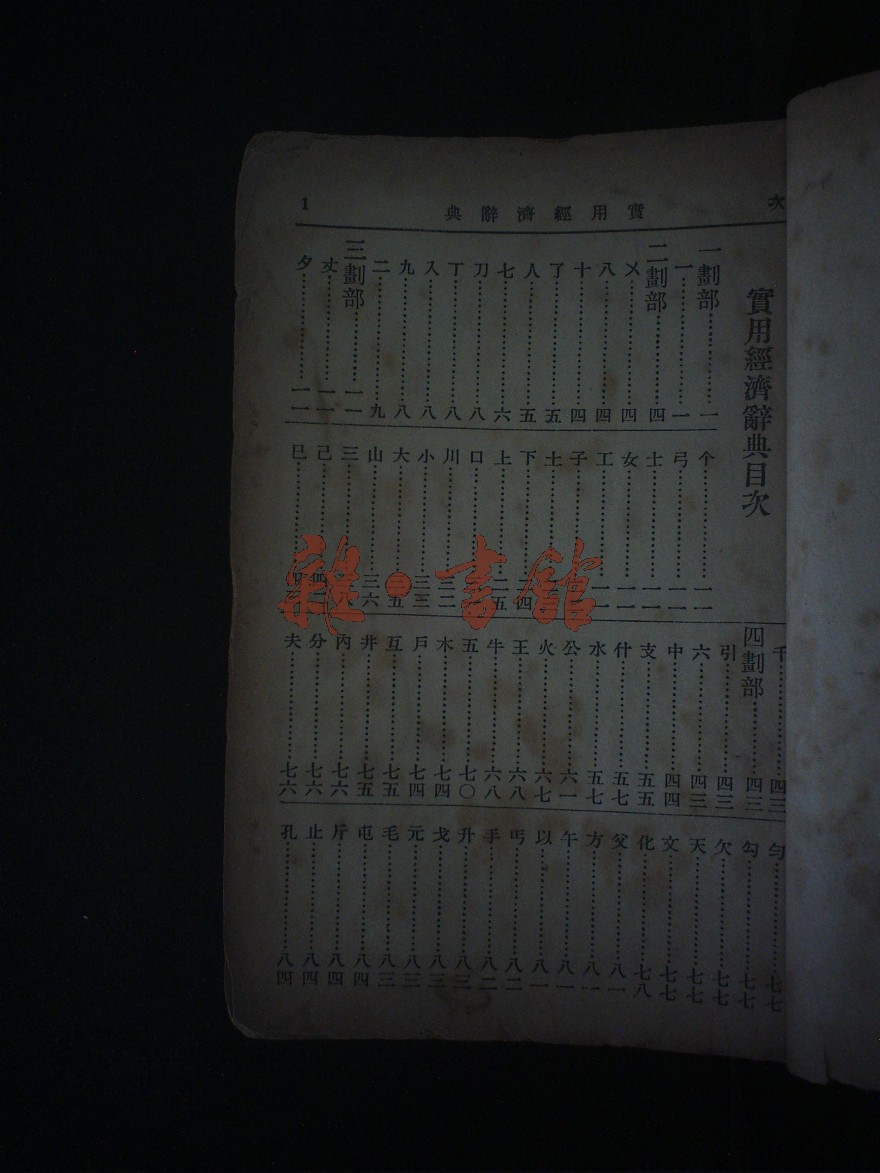 次
實用經濟辭典
1
實用經濟辭典目次
一劃部……一
一……一
二劃部……四
乂……四
八……四
十……四
了……五
人……五
七……六
刀……八
丁……八
入……八
九……八
二……九
三劃部……一一
丈……一一
夕……一一
个……一一
弓……一一
士……一一
女……一一
工……
子……
土……
下……
上……二五
口……
川……三二
小……三三
大……三五
山……三六
三……
己……
巳……
千……四三
四劃部……四三
引……四三
六……四三
中……四四
支……五五
什……五七
水……五七
公……六一
火……六七
王……六八
牛……六八
五……七〇
木……七四
戶……七四
互……七五
井……七五
內……七六
分……七六
夫……七六
勻……七七
勾……七七
欠……七七
天……七七
文……七七
化……七八
父……八一
方……八一
午……八一
以……八一
丐……八二
手……八二
升……八三
戈……八三
元……八三
毛……八三
屯……八四
斤……八四
止……八四
孔……八四
雜·書館